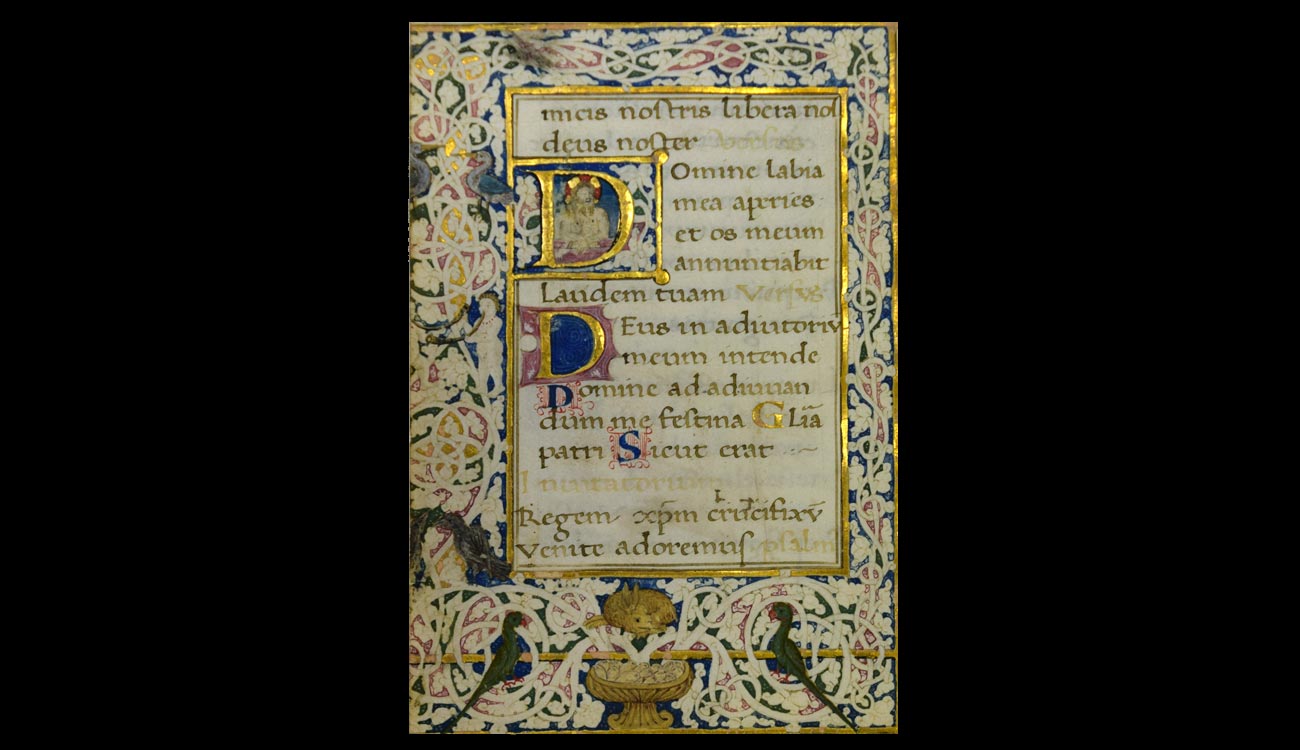 micis nostris libera nos
deus noster Versus
Domine labia
mea aperies
et os meum
annuntiabit
Laudem tuam Versus
DEus in adiutoriū
meum intende
Domine ad adiuuan
dum me festina Gl̄iā
patri Sicut erat
Inuitatorium
Regem xp̄m crucifixū
Venite adoremus psalm